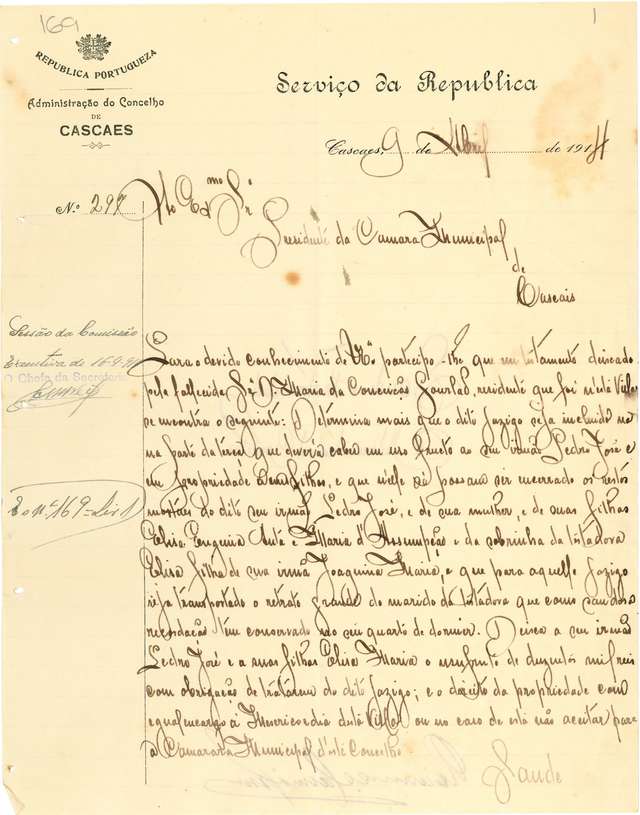 169
1
REPUBLICA PORTUGUEZA
Administração do Concelho
DE
CASCAES
Serviço da Republica
Cascaes, 9 de Abril de 1914
N.º 297
Ao Exmo Sr
Presidente da Camara Municipal
de
Cascais
Sessão da Comissão
Executiva de 16-4-914
O Chefe da Secretaria
Para o devido conhecimento de V.ª participo-lhe que um testamento deixado
pela fallecida Sr.ª D. Maria da Conceição, residente que foi n'esta Villa
se encontra o seguinte: Determina mais que o dito Jazigo seja incluido na
na parte da terça que deverá caber em uso fructo ao seu irmão Pedro José e
em propriedade filhos, e que n'elle só possam ser encerrado os restos
mortaes do dito seu irmão Pedro José, e de sua mulher, e de suas filhas
Elisa Eugenia e Maria d'Assumpção e da sobrinha da testadora
Elisa filha de sua irmã Joaquina Maria, e que para aquelle Jazigo
seja transportado o retrato grande do marido da testadora que como saudosa
recordação tem conservado no seu quarto de dormir. Deixa a seu irmão
Pedro José e a suas filhas Elisa Maria o usufruto de duzentos mil reis
com obrigação de tratarem do dito Jazigo; e o direito da propriedade com
egual encargo á Misericordia desta Villa ou no caso de esta não aceitar para
a Camara Municipal d'este Concelho
E o N.º 169 - Liv 1
Saude